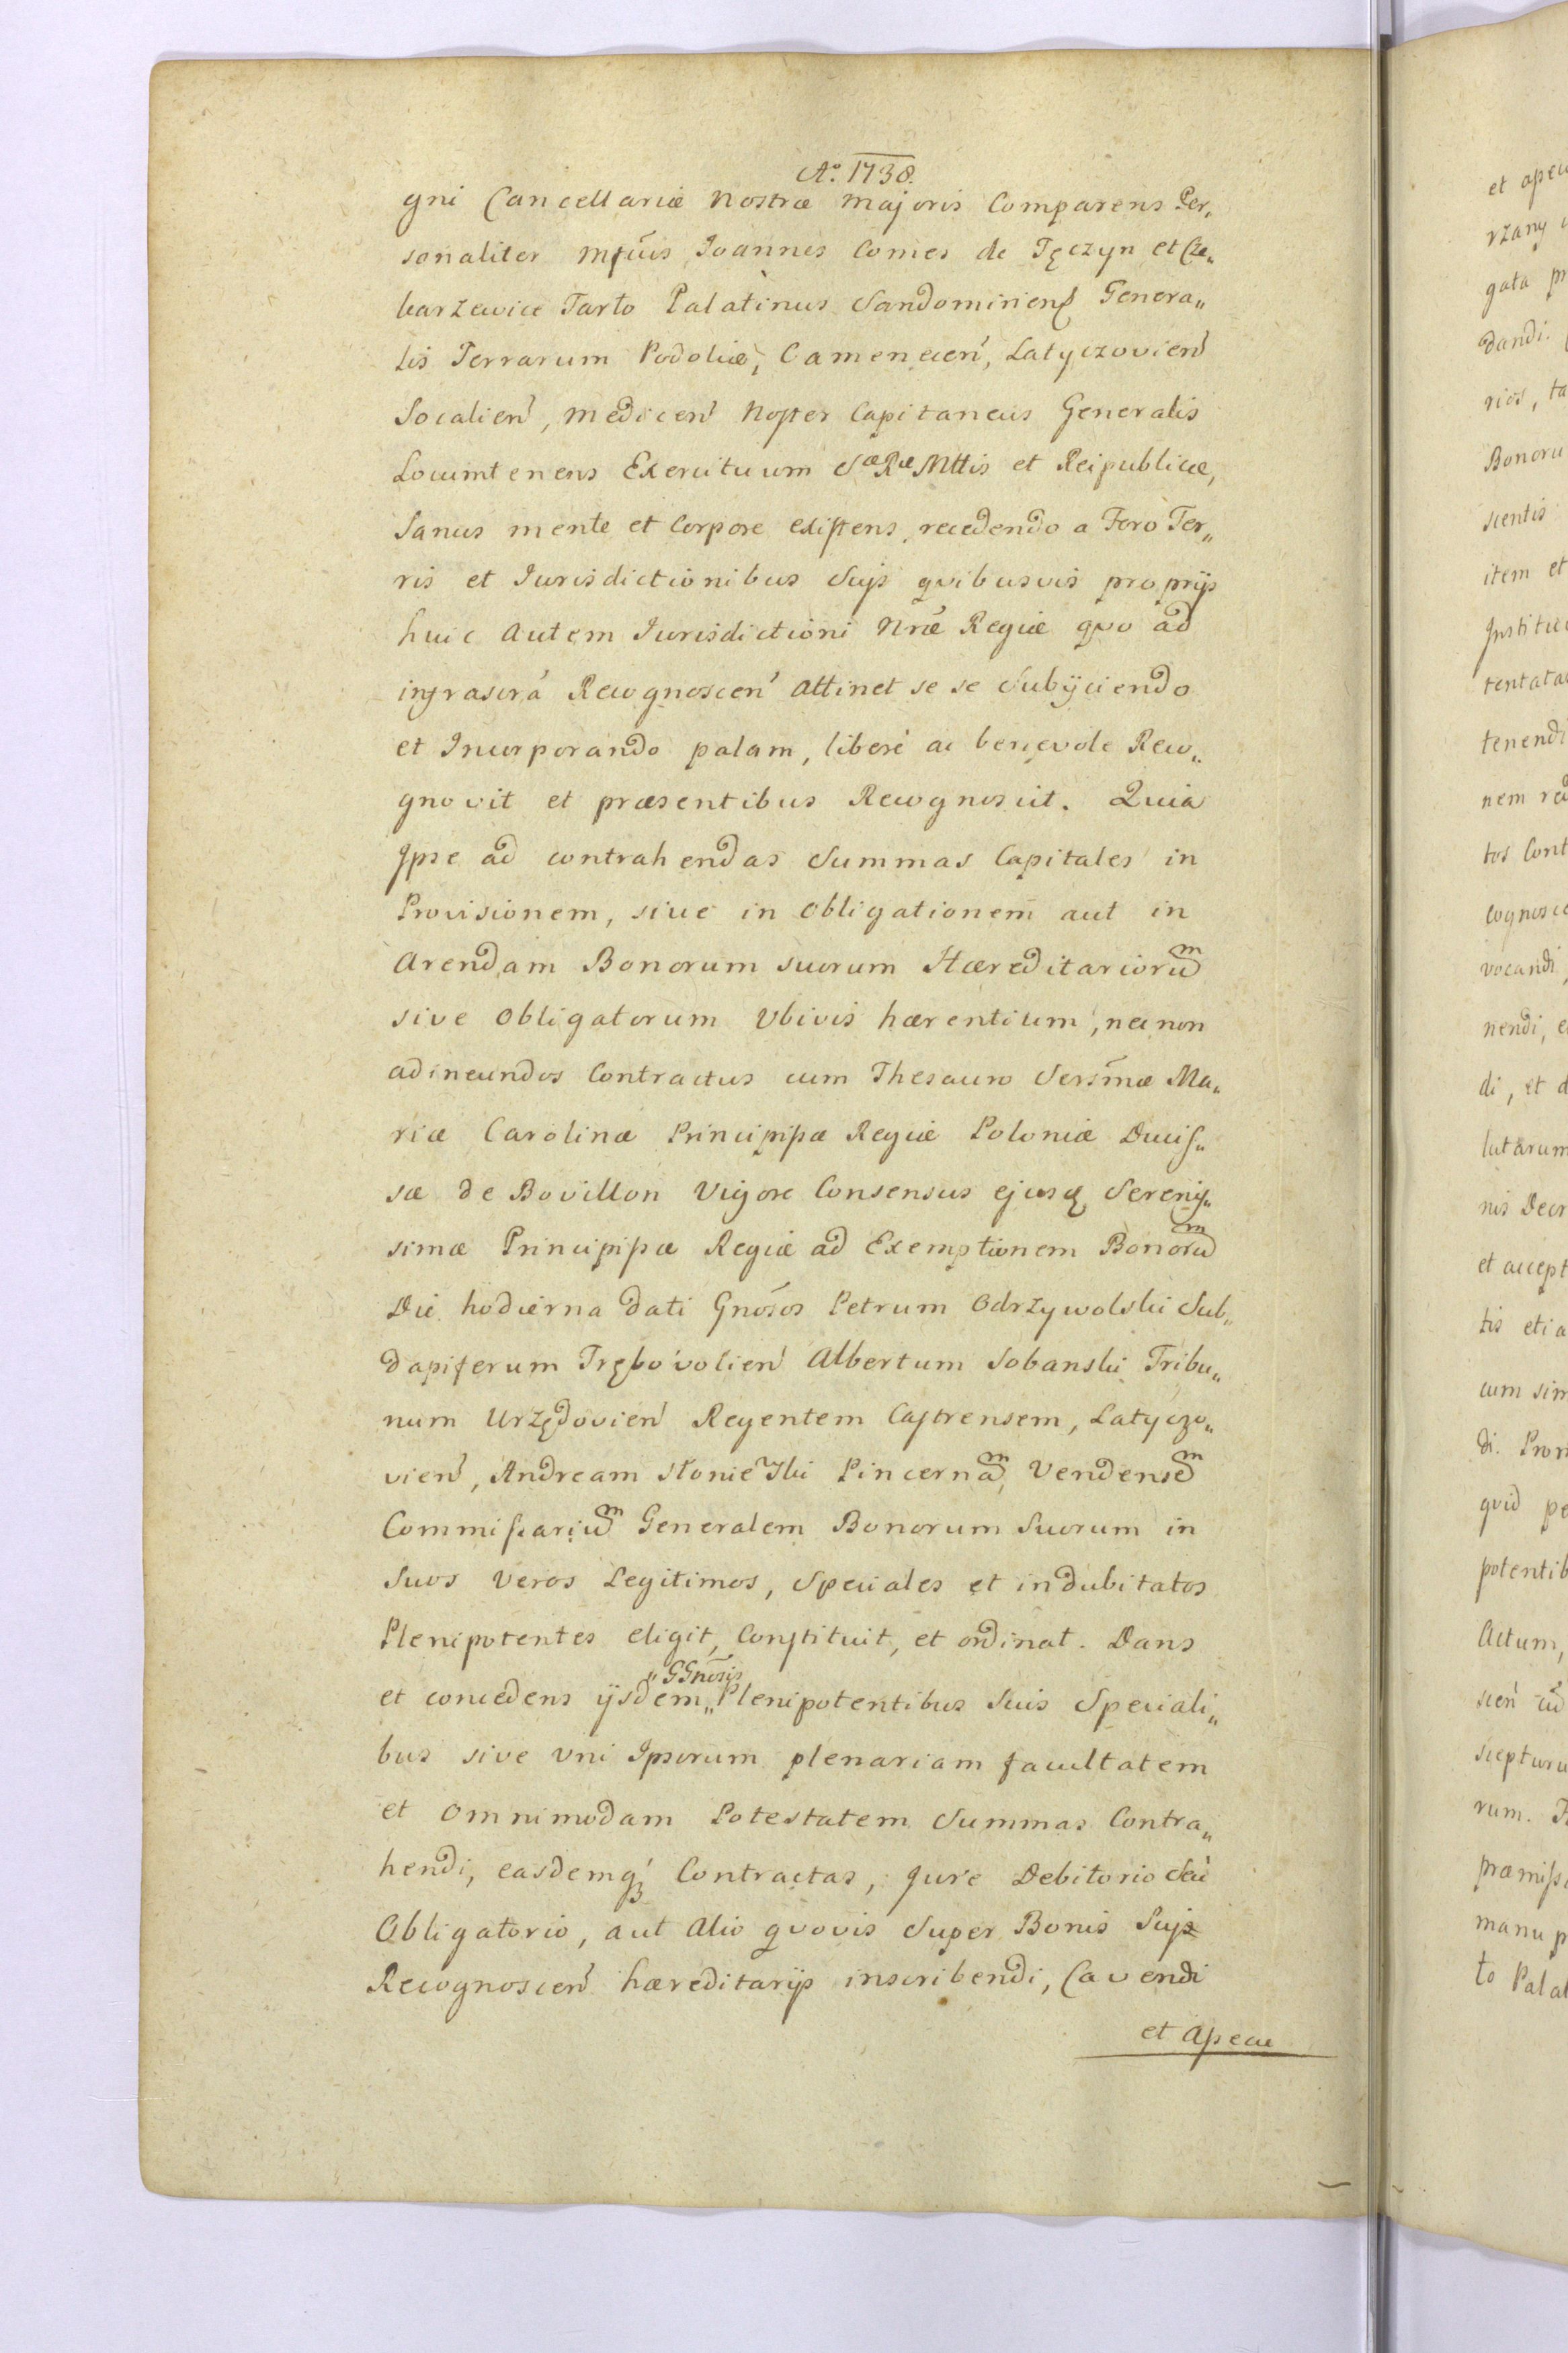 Aº. 1738.
gni Cancellariæ Nostræ Majoris Comparens Per„
sonaliter Mfcus Joannes Comes de Tęczyn et Cze„
karzewice Tarło Palatinus Sandomirien̄ Genera„
lis Terrarum Podoliæ, Camenecen̄, Latyczovien̄
Socalien̄, Medicen̄ Noster Capitaneus Generalis
Locumtenens Exercituum Sæ Ræ Mttis et Reipublicæ,
Sanus mente et Corpore existens, recedendo a Foro Ter„
ris et Jurisdictionibus Suis quibusvis proprijs
huic autem Jurisdictioni Nr̄æ Regiæ quo ad
infrascr̄a Recognoscen̄ attinet se se Subijciendo
et Incorporando palam, liberé ac benevole Reco„
gnovit et præsentibus Recognoscit. Quia
Ipse ad contrahendas Summas Capitales in
Provisionem, sive in obligationem aut in
Arendam Bonorum suorum Hæreditarioru͠m
sive Obligatorum Vbivis hærentium, nec non
ad ineundos Contractus cum Thesauro Sersmæ Ma„
riæ Carolinæ Principissæ Regiæ Poloniæ Ducis„
sæ de Bovillon Vigore Consensus ejusq Serenis„
simæ Principissæ Regiæ ad Exemptionem Bonoru͠m
Die hodierna dati Gnosos Petrum Odrzywolski Sub„
dapiferum Trębovolien̄ Albertum Sobanski Tribu„
num Urzędovien̄ Regentem Castrensem, Latyczo„
vien̄, Andream Słonie͠ski Pincerna͠m, Vendense͠m
Commissariu͠m Generalem Bonorum Suorum in
Suos Veros Legitimos, Speciales et indubitatos
Plenipotentes eligit, Constituit, et ordinat. Dans
„GGnosis
et concedens ijsdem„ Plenipotentibus Suis Speciali„
bus sive vni Ipsorum plenariam facultatem
et omnimodam Potestatem Summas Contra„
hendi, easdemq́ȝ Contractas, Jure Debitorio Seu
Obligatorio, aut Alio quovis Super Bonis Suis
Recognoscen̄ hæreditarijs inscribendi, Cavendi
et Apecae
et apecu
rzany
gata
dandi.
rios, ta
Bonoru
scentis
item et
Institui
tentatae
tenendi
nem
tos Cont
cognosc
vocandi,
nendi, e
di, et d
lutarum
nis Decr
et accept
tis etia
cum sim
di.
quid pe
potentib
Actum,
scen̄
scepturu
rum.
præmiss
manu p
to Palat